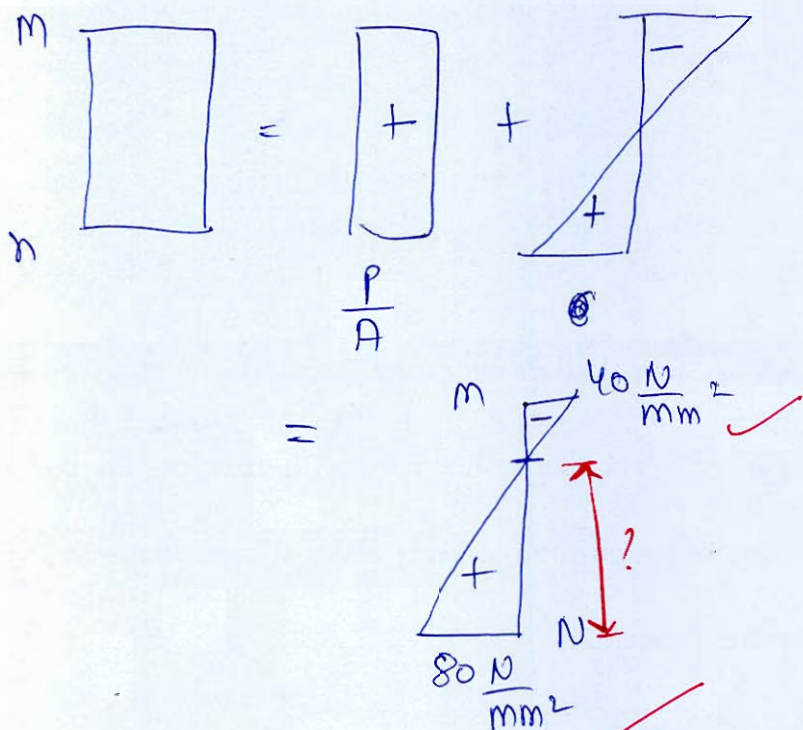 m
= + + - +
n
P/A σ
= m - 40 N/mm²
+ ?
N
80 N/mm²